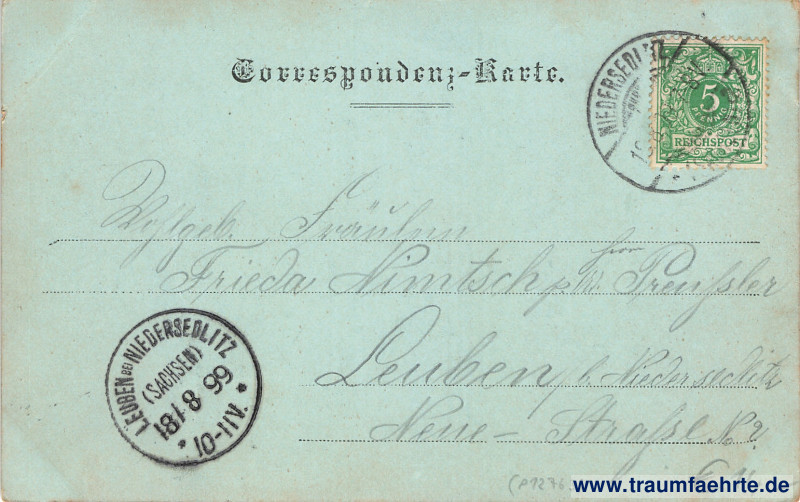 Correspondenz-Karte.
NIEDERSEDLITZ
5
PFENNIG
REICHSPOST
Wohlgeb. Fräulein
Frieda Nimtsch p. Ad. Herrn Preußler
Leuben b. Niedersedlitz
Neue-Straße No
LEUBEN BEI NIEDERSEDLITZ
(SACHSEN)
18/8 99
* 10-11V. *
(P1276
www.traumfaehrte.de